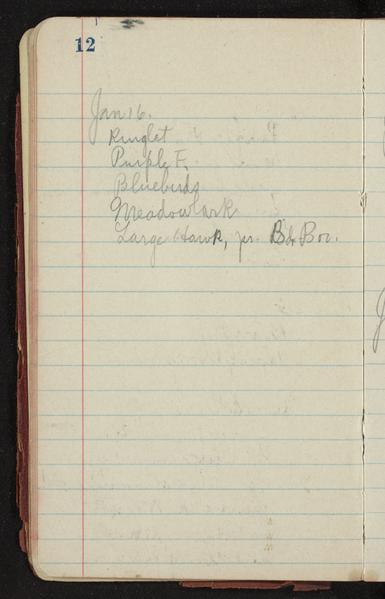 12
Jan 16.
Ringlet
Purple F.
Bluebirds
Meadowlark
Large Hawk, pr. Bd